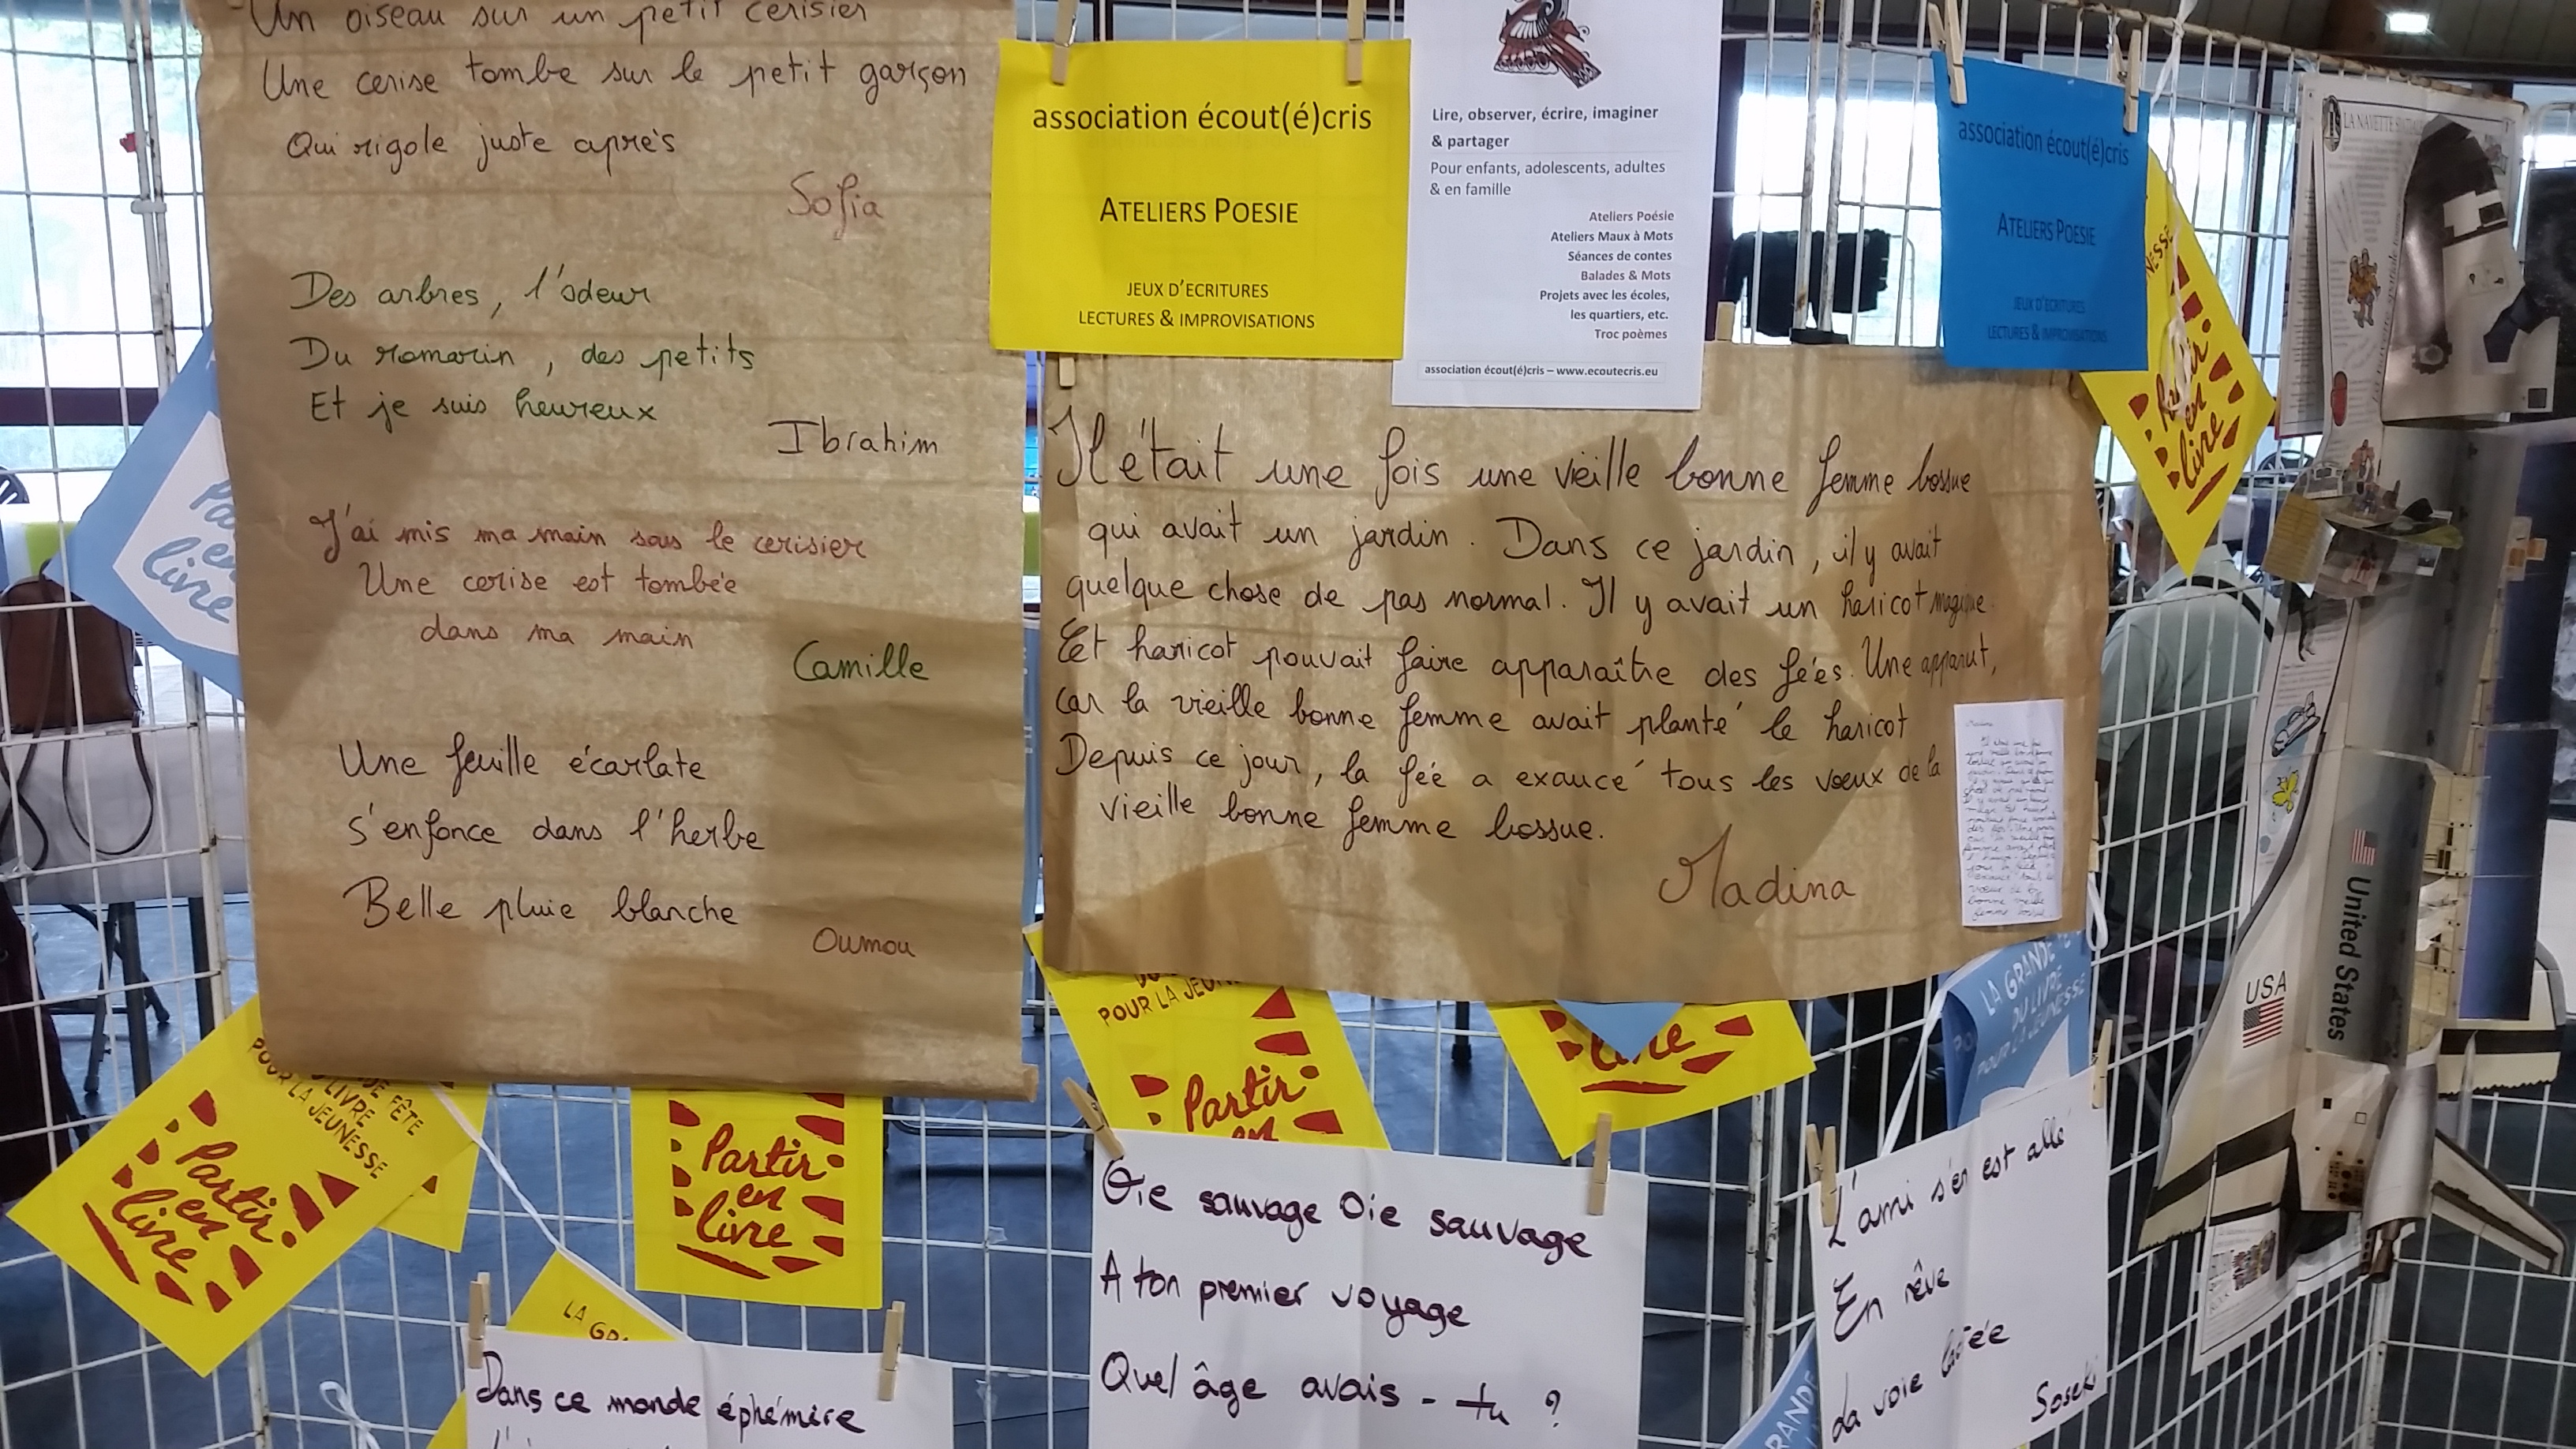 Un oiseau sur un petit cerisier
Une cerise tombe sur le petit garçon
Qui rigole juste après
Sofia
Des arbres, l'odeur
Du romarin, des petits
Et je suis heureux
Ibrahim
J'ai mis ma main sous le cerisier
Une cerise est tombée
dans ma main
Camille
Une feuille écarlate
s'enfonce dans l'herbe
Belle pluie blanche
Oumou
association écout(é)cris
ATELIERS POESIE
JEUX D'ECRITURES
LECTURES & IMPROVISATIONS
Lire, observer, écrire, imaginer
& partager
Pour enfants, adolescents, adultes
& en famille
Ateliers Poésie
Ateliers Maux à Mots
Séances de contes
Balades & Mots
Projets avec les écoles,
les quartiers, etc.
Troc poèmes
association écout(é)cris – www.ecoutecris.eu
association écout(é)cris
ATELIERS POESIE
JEUX D'ECRITURES
LECTURES & IMPROVISATIONS
Il était une fois une vieille bonne femme bossue
qui avait un jardin. Dans ce jardin, il y avait
quelque chose de pas normal. Il y avait un haricot magique.
Cet haricot pouvait faire apparaître des fées. Une apparut,
car la vieille bonne femme avait planté le haricot
Depuis ce jour, la fée a exaucé tous les vœux de la
vieille bonne femme bossue.
Madina
LA NAVETTE
en
livre
en
livre
USA
United States
LA GRANDE
DU LIVRE
POUR LA JEUNESSE
FÊTE
LIVRE
POUR LA JEUNESSE
Partir
en
livre
Partir
en
livre
POUR LA
Partir
en
livre
LA
Dans ce monde éphémère
Oie sauvage Oie sauvage
A ton premier voyage
Quel âge avais-tu ?
L'ami s'en est allé
En rêve
La voie lactée
Soseki